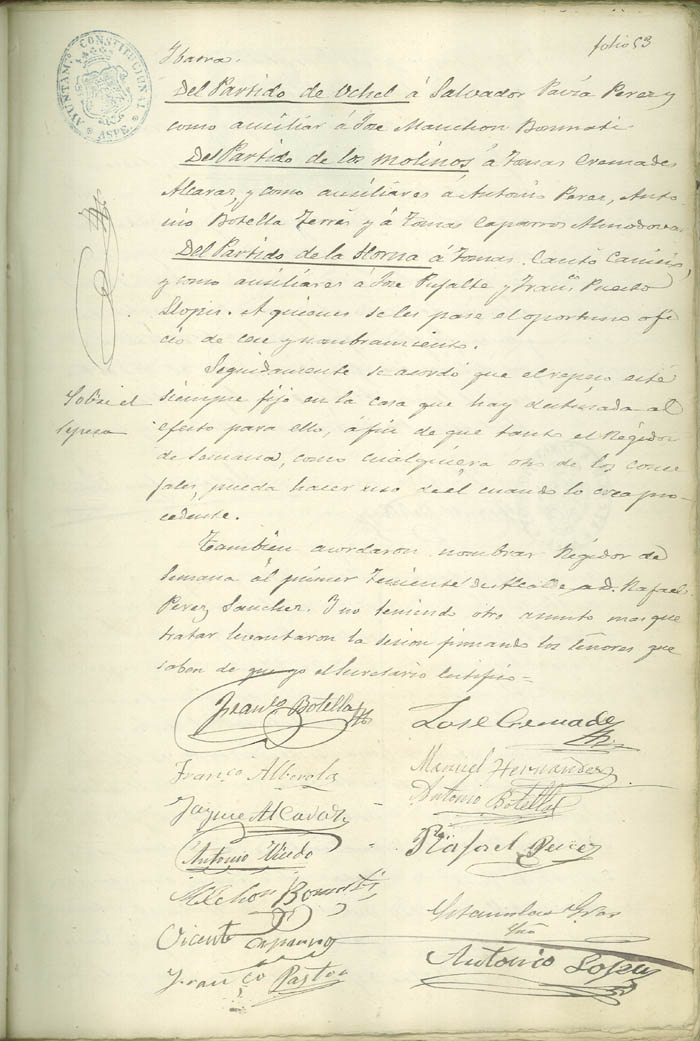 folio 53
AYUNTAM.º CONSTITUCIONAL
* ASPE. *
Ibarra.
Del Partido de Uchel á Salvador Pavía Perez y
como auxiliar á Jose Manchon Bonmati
Del Partido de los Molinos á Tomas Cremades
Alcaraz, y como auxiliares á Antonio Perez, Anto
nio Botella Terres y á Tomas Caparros Almodovar
Del Partido de la Horna á Tomas Cantó
y como auxiliares á Jose Pujalte y Fran.co Puerto
Llopis. A quienes se les pase el oportuno ofi
cio de cese y nombramiento.
Sobre el
repeso
Seguidamente se acordó que el repeso esté
siempre fijo en la casa que hay destinada al
efecto para ello, a fin de que tanto el Regidor
de Semana, como cualquiera otro de los conce
jales, pueda hacer uso de él cuando lo crea pro
cedente.
Tambien acordaron nombrar Regidor de
Semana al primer Teniente de Alcalde a D. Rafael
Perez Sanchez. Y no teniendo otro asunto mas que
tratar levantaron la sesion firmando los Señores que
saben de que yo el Secretario certifico =
Fran.co Botella
Jose Cremades
Franco Alberola
Manuel Hernandez
Jayme Alcaraz
Antonio Botella
Antonio
Rafael Perez
Melchor Bonmati
Vicente
Estanislao Gras
Franco Pastor
Antonio Lopez